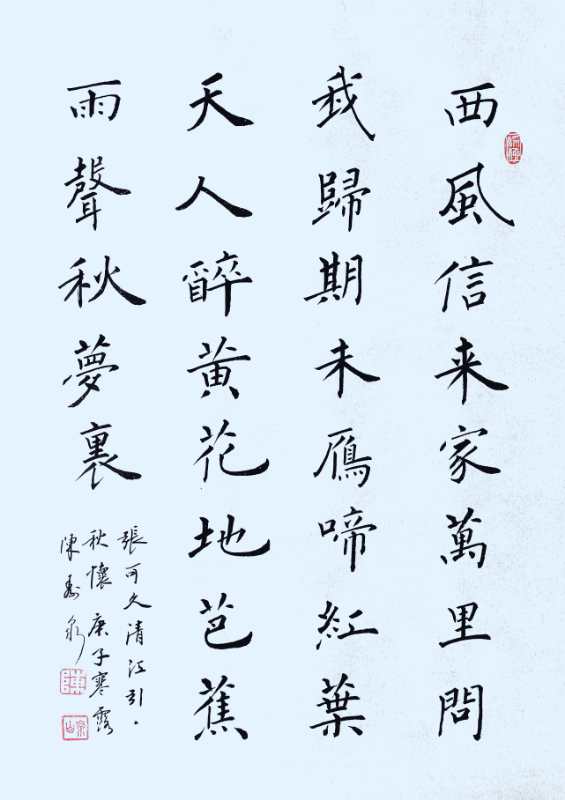 西風信来家萬里問
我歸期未鴈啼紅葉
天人醉黃花地芭蕉
雨聲秋夢裏
張可久清江引·
秋懷 庚子寒露
陳